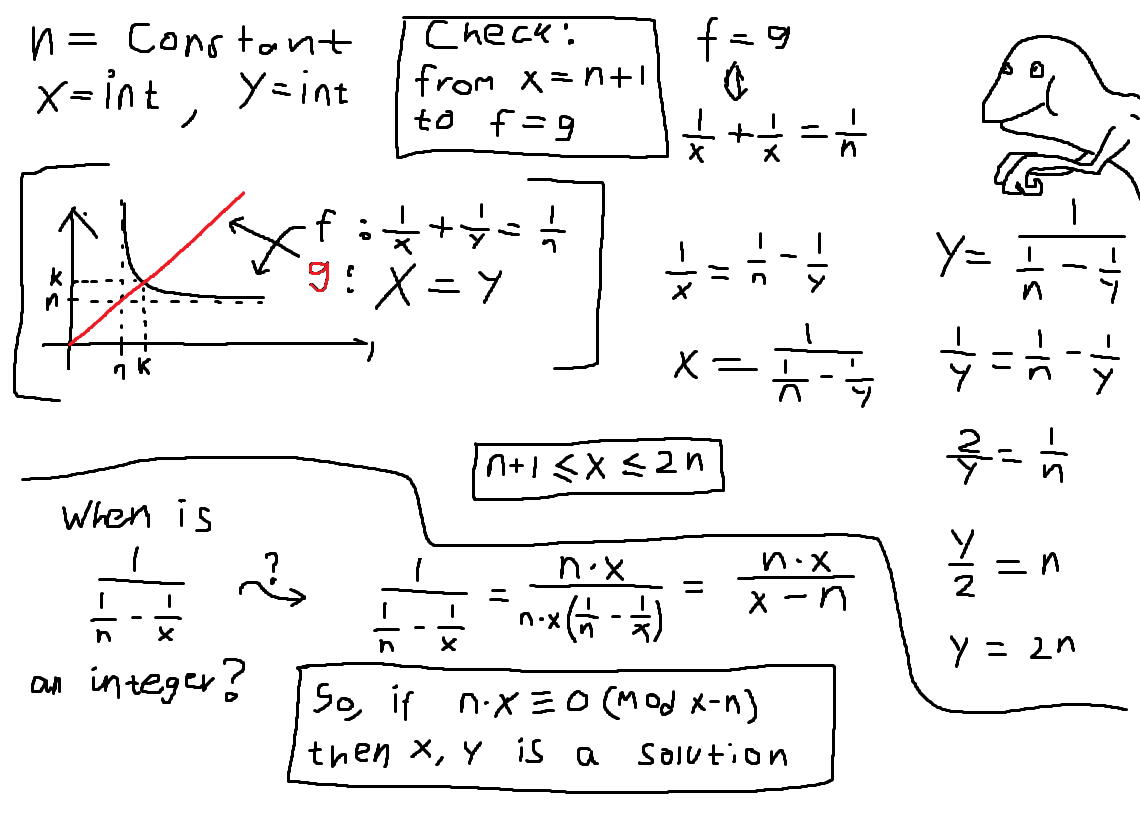 n = Constant
x = int , y = int
Check:
from x = n+1
to f = g
f = g
1/x + 1/x = 1/n
f : 1/x + 1/y = 1/n
g : X = Y
k
n
n k
1/x = 1/n - 1/y
x = 1/(1/n - 1/y)
y = 1/(1/n - 1/y)
1/y = 1/n - 1/y
2/y = 1/n
y/2 = n
y = 2n
n+1 ≤ x ≤ 2n
When is
1/(1/n - 1/x) ?
an integer?
1/(1/n - 1/x) = n·x/(n·x(1/n - 1/x)) = n·x/(x - n)
So, if n·x ≡ 0 (mod x-n)
then x, y is a solution